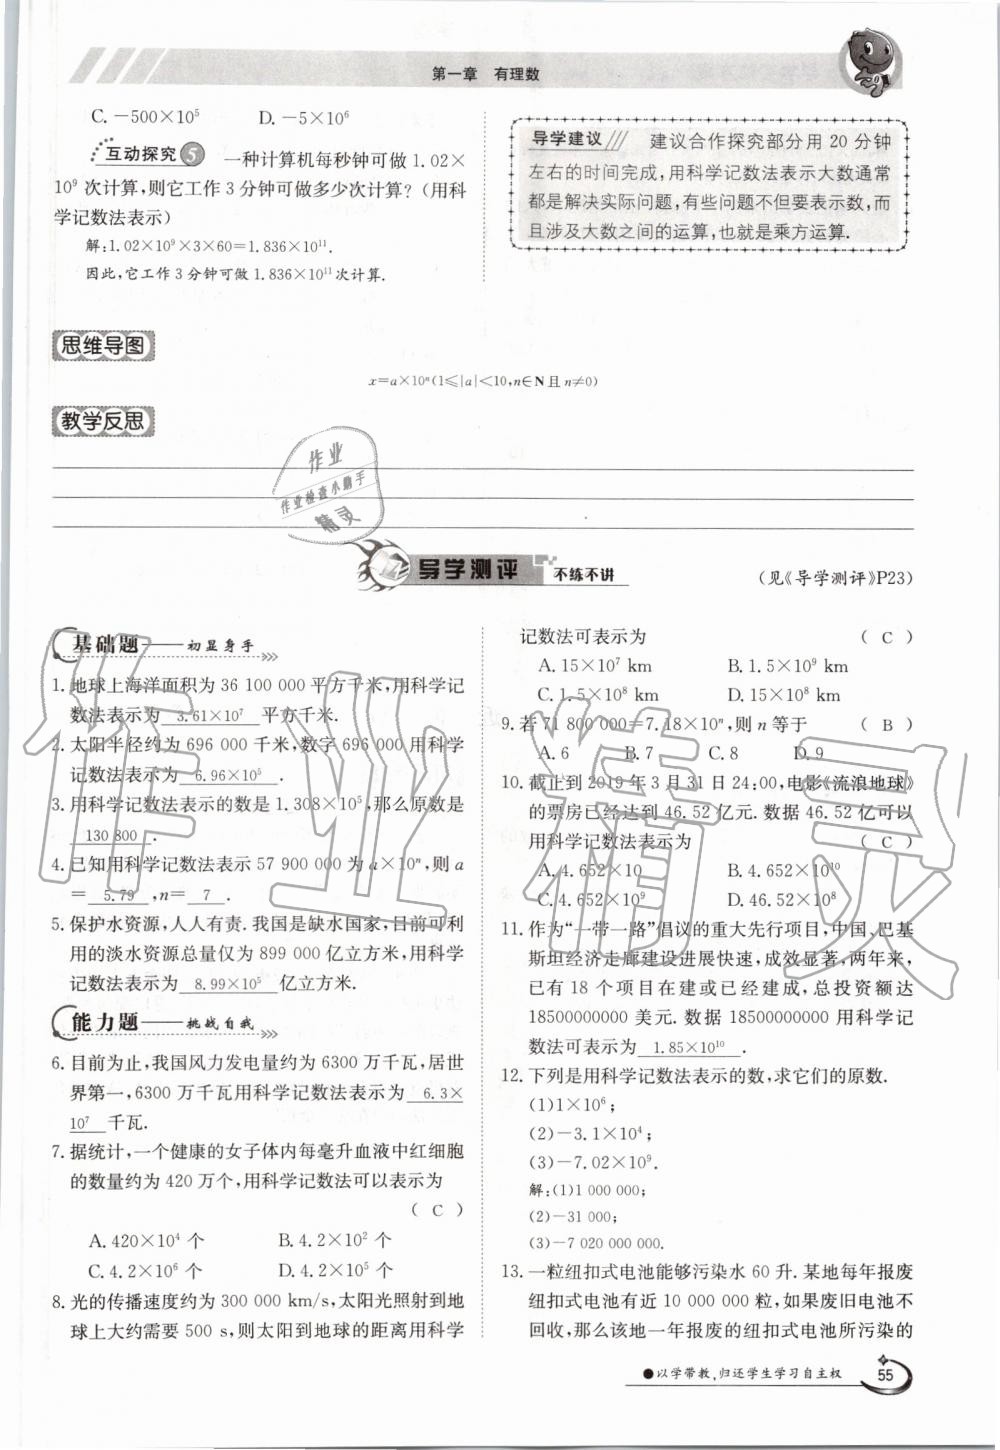 第一章　有理数
C. －500×10⁵　D. －5×10⁶
互动探究5　一种计算机每秒钟可做 1.02×
10⁹ 次计算,则它工作 3 分钟可做多少次计算?(用科
学记数法表示)
解:1.02×10⁹×3×60=1.836×10¹¹.
因此,它工作 3 分钟可做 1.836×10¹¹ 次计算.
导学建议　建议合作探究部分用 20 分钟
左右的时间完成,用科学记数法表示大数通常
都是解决实际问题,有些问题不但要表示数,而
且涉及大数之间的运算,也就是乘方运算.
思维导图
x=a×10ⁿ(1≤|a|<10,n∈N且 n≠0)
教学反思
作业
作业检查小助手
精灵
导学测评　不练不讲
(见《导学测评》P23)
基础题——初显身手
1. 地球上海洋面积为 36 100 000 平方千米,用科学记
数法表示为 3.61×10⁷ 平方千米.
2. 太阳半径约为 696 000 千米,数字 696 000 用科学
记数法表示为 6.96×10⁵ .
3. 用科学记数法表示的数是 1.308×10⁵,那么原数是
130 800 .
4. 已知用科学记数法表示 57 900 000 为 a×10ⁿ,则 a
= 5.79 ,n= 7 .
5. 保护水资源,人人有责. 我国是缺水国家,目前可利
用的淡水资源总量仅为 899 000 亿立方米,用科学
记数法表示为 8.99×10⁵ 亿立方米.
能力题——挑战自我
6. 目前为止,我国风力发电量约为 6300 万千瓦,居世
界第一,6300 万千瓦用科学记数法表示为 6.3×
10⁷ 千瓦.
7. 据统计,一个健康的女子体内每毫升血液中红细胞
的数量约为 420 万个,用科学记数法可以表示为
( C )
A. 420×10⁴ 个　B. 4.2×10² 个
C. 4.2×10⁶ 个　D. 4.2×10⁵ 个
8. 光的传播速度约为 300 000 km/s,太阳光照射到地
球上大约需要 500 s,则太阳到地球的距离用科学
记数法可表示为　( C )
A. 15×10⁷ km　B. 1.5×10⁹ km
C. 1.5×10⁸ km　D. 15×10⁸ km
9. 若 71 800 000=7.18×10ⁿ,则 n 等于　( B )
A. 6　B. 7　C. 8　D. 9
10. 截止到 2019 年 3 月 31 日 24:00,电影《流浪地球》
的票房已经达到 46.52 亿元. 数据 46.52 亿可以
用科学记数法表示为　( C )
A. 4.652×10　B. 4.652×10¹⁰
C. 4.652×10⁹　D. 46.52×10⁸
11. 作为“一带一路”倡议的重大先行项目,中国、巴基
斯坦经济走廊建设进展快速,成效显著,两年来,
已有 18 个项目在建或已经建成,总投资额达
18500000000 美元. 数据 18500000000 用科学记
数法可表示为 1.85×10¹⁰ .
12. 下列是用科学记数法表示的数,求它们的原数.
(1)1×10⁶;
(2)－3.1×10⁴;
(3)－7.02×10⁹.
解:(1)1 000 000;
(2)－31 000;
(3)－7 020 000 000.
13. 一粒纽扣式电池能够污染水 60 升. 某地每年报废
纽扣式电池有近 10 000 000 粒,如果废旧电池不
回收,那么该地一年报废的纽扣式电池所污染的
●以学带教,归还学生学习自主权
55
作业精灵